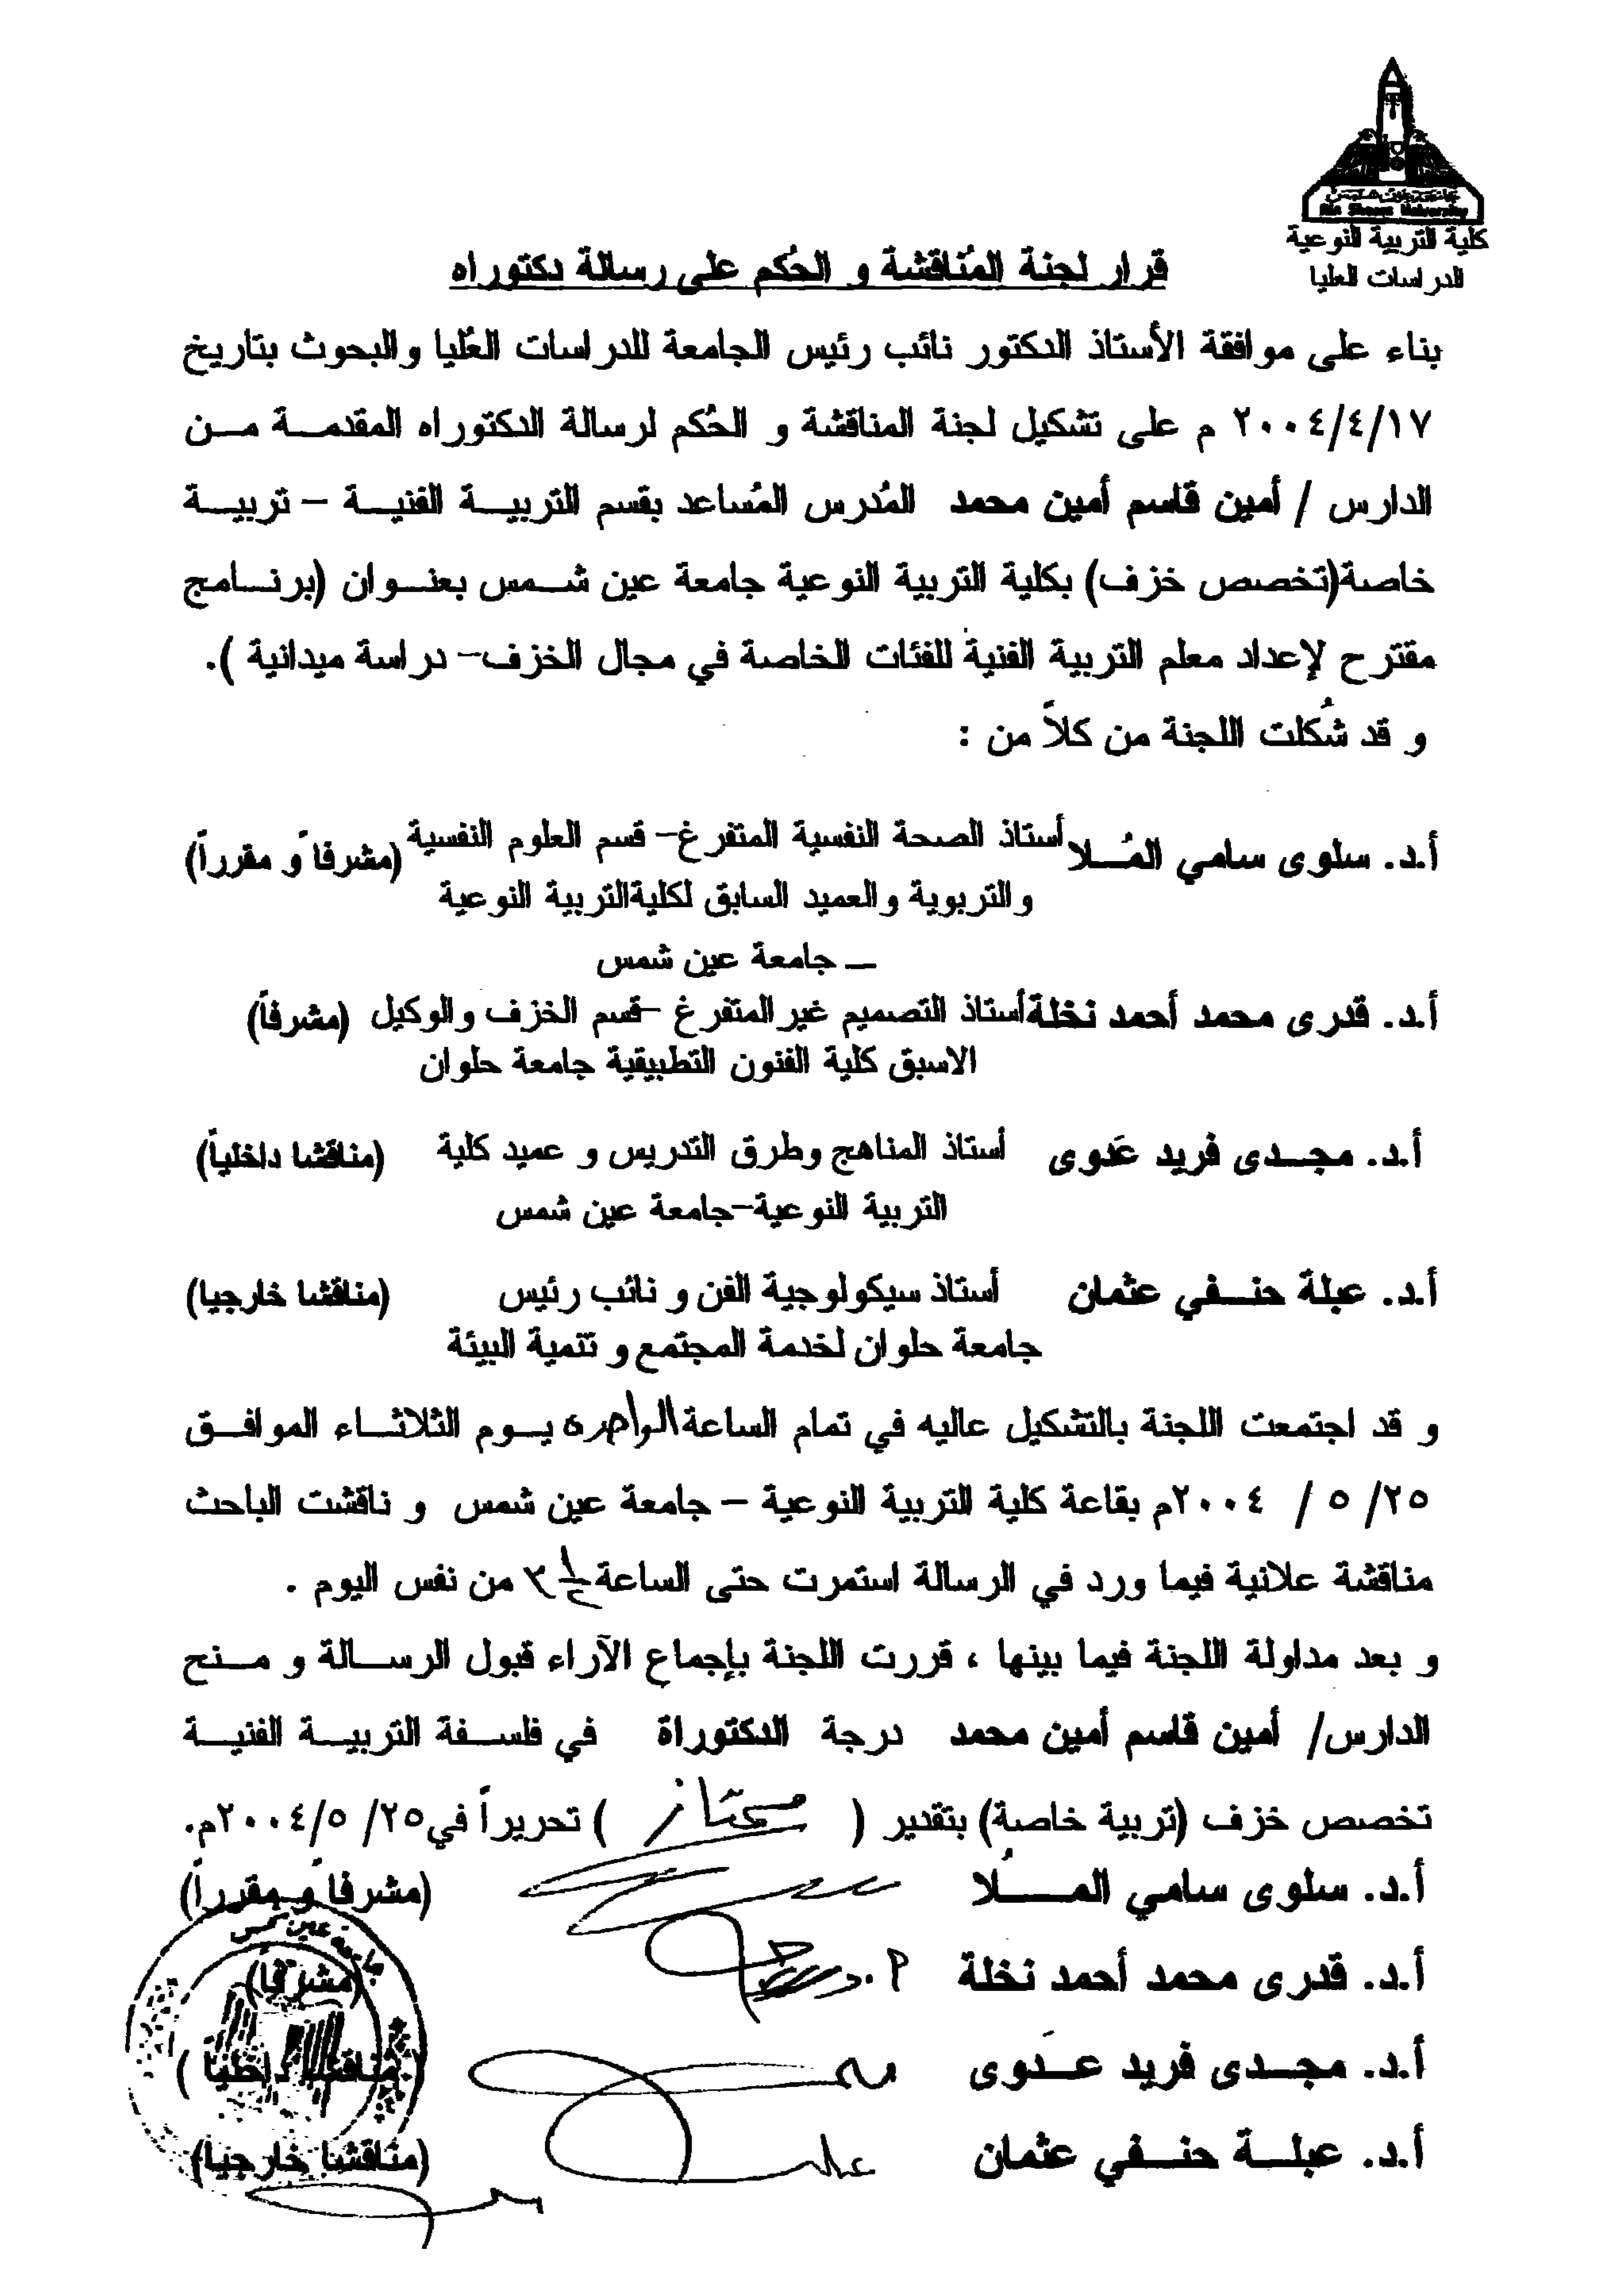 جامعة عين شمس
Ain Shams University
كلية التربية النوعية
الدراسات العليا
قرار لجنة المُناقشة و الحُكم على رسالة دكتوراه
بناء على موافقة الأستاذ الدكتور نائب رئيس الجامعة للدراسات العُليا والبحوث بتاريخ
٢٠٠٤/٤/١٧ م على تشكيل لجنة المناقشة و الحُكم لرسالة الدكتوراه المقدمة من
الدارس / أمين قاسم أمين محمد المُدرس المُساعد بقسم التربية الفنية – تربية
خاصة(تخصص خزف) بكلية التربية النوعية جامعة عين شمس بعنوان (برنامج
مقترح لإعداد معلم التربية الفنية للفئات الخاصة في مجال الخزف– دراسة ميدانية ).
و قد شُكلت اللجنة من كلاً من :
أ.د. سلوى سامي المُلا أستاذ الصحة النفسية المتفرغ– قسم العلوم النفسية (مشرفاً و مقرراً)
والتربوية والعميد السابق لكليةالتربية النوعية
– جامعة عين شمس
أ.د. قدرى محمد أحمد نخلة أستاذ التصميم غير المتفرغ –قسم الخزف والوكيل (مشرفاً)
الاسبق كلية الفنون التطبيقية جامعة حلوان
أ.د. مجدى فريد عَدوى أستاذ المناهج وطرق التدريس و عميد كلية (مناقشا داخلياً)
التربية النوعية–جامعة عين شمس
أ.د. عبلة حنفي عثمان أستاذ سيكولوجية الفن و نائب رئيس (مناقشا خارجيا)
جامعة حلوان لخدمة المجتمع و تنمية البيئة
و قد اجتمعت اللجنة بالتشكيل عاليه في تمام الساعة الواحدة يوم الثلاثاء الموافق
٢٥/ ٥ / ٢٠٠٤م بقاعة كلية التربية النوعية – جامعة عين شمس و ناقشت الباحث
مناقشة علانية فيما ورد في الرسالة استمرت حتى الساعة من نفس اليوم .
و بعد مداولة اللجنة فيما بينها ، قررت اللجنة بإجماع الآراء قبول الرسالة و منح
الدارس/ أمين قاسم أمين محمد درجة الدكتوراة في فلسفة التربية الفنية
تخصص خزف (تربية خاصة) بتقدير ( ممتاز ) تحريراً في٢٥/ ٢٠٠٤/٥م.
أ.د. سلوى سامي المُلا (مشرفاً و مقرراً)
أ.د. قدرى محمد أحمد نخلة (مشرفاً)
أ.د. مجدى فريد عَدوى (مناقشا داخليا )
أ.د. عبلة حنفي عثمان (مناقشا خارجيا)
جامعة عين شمس